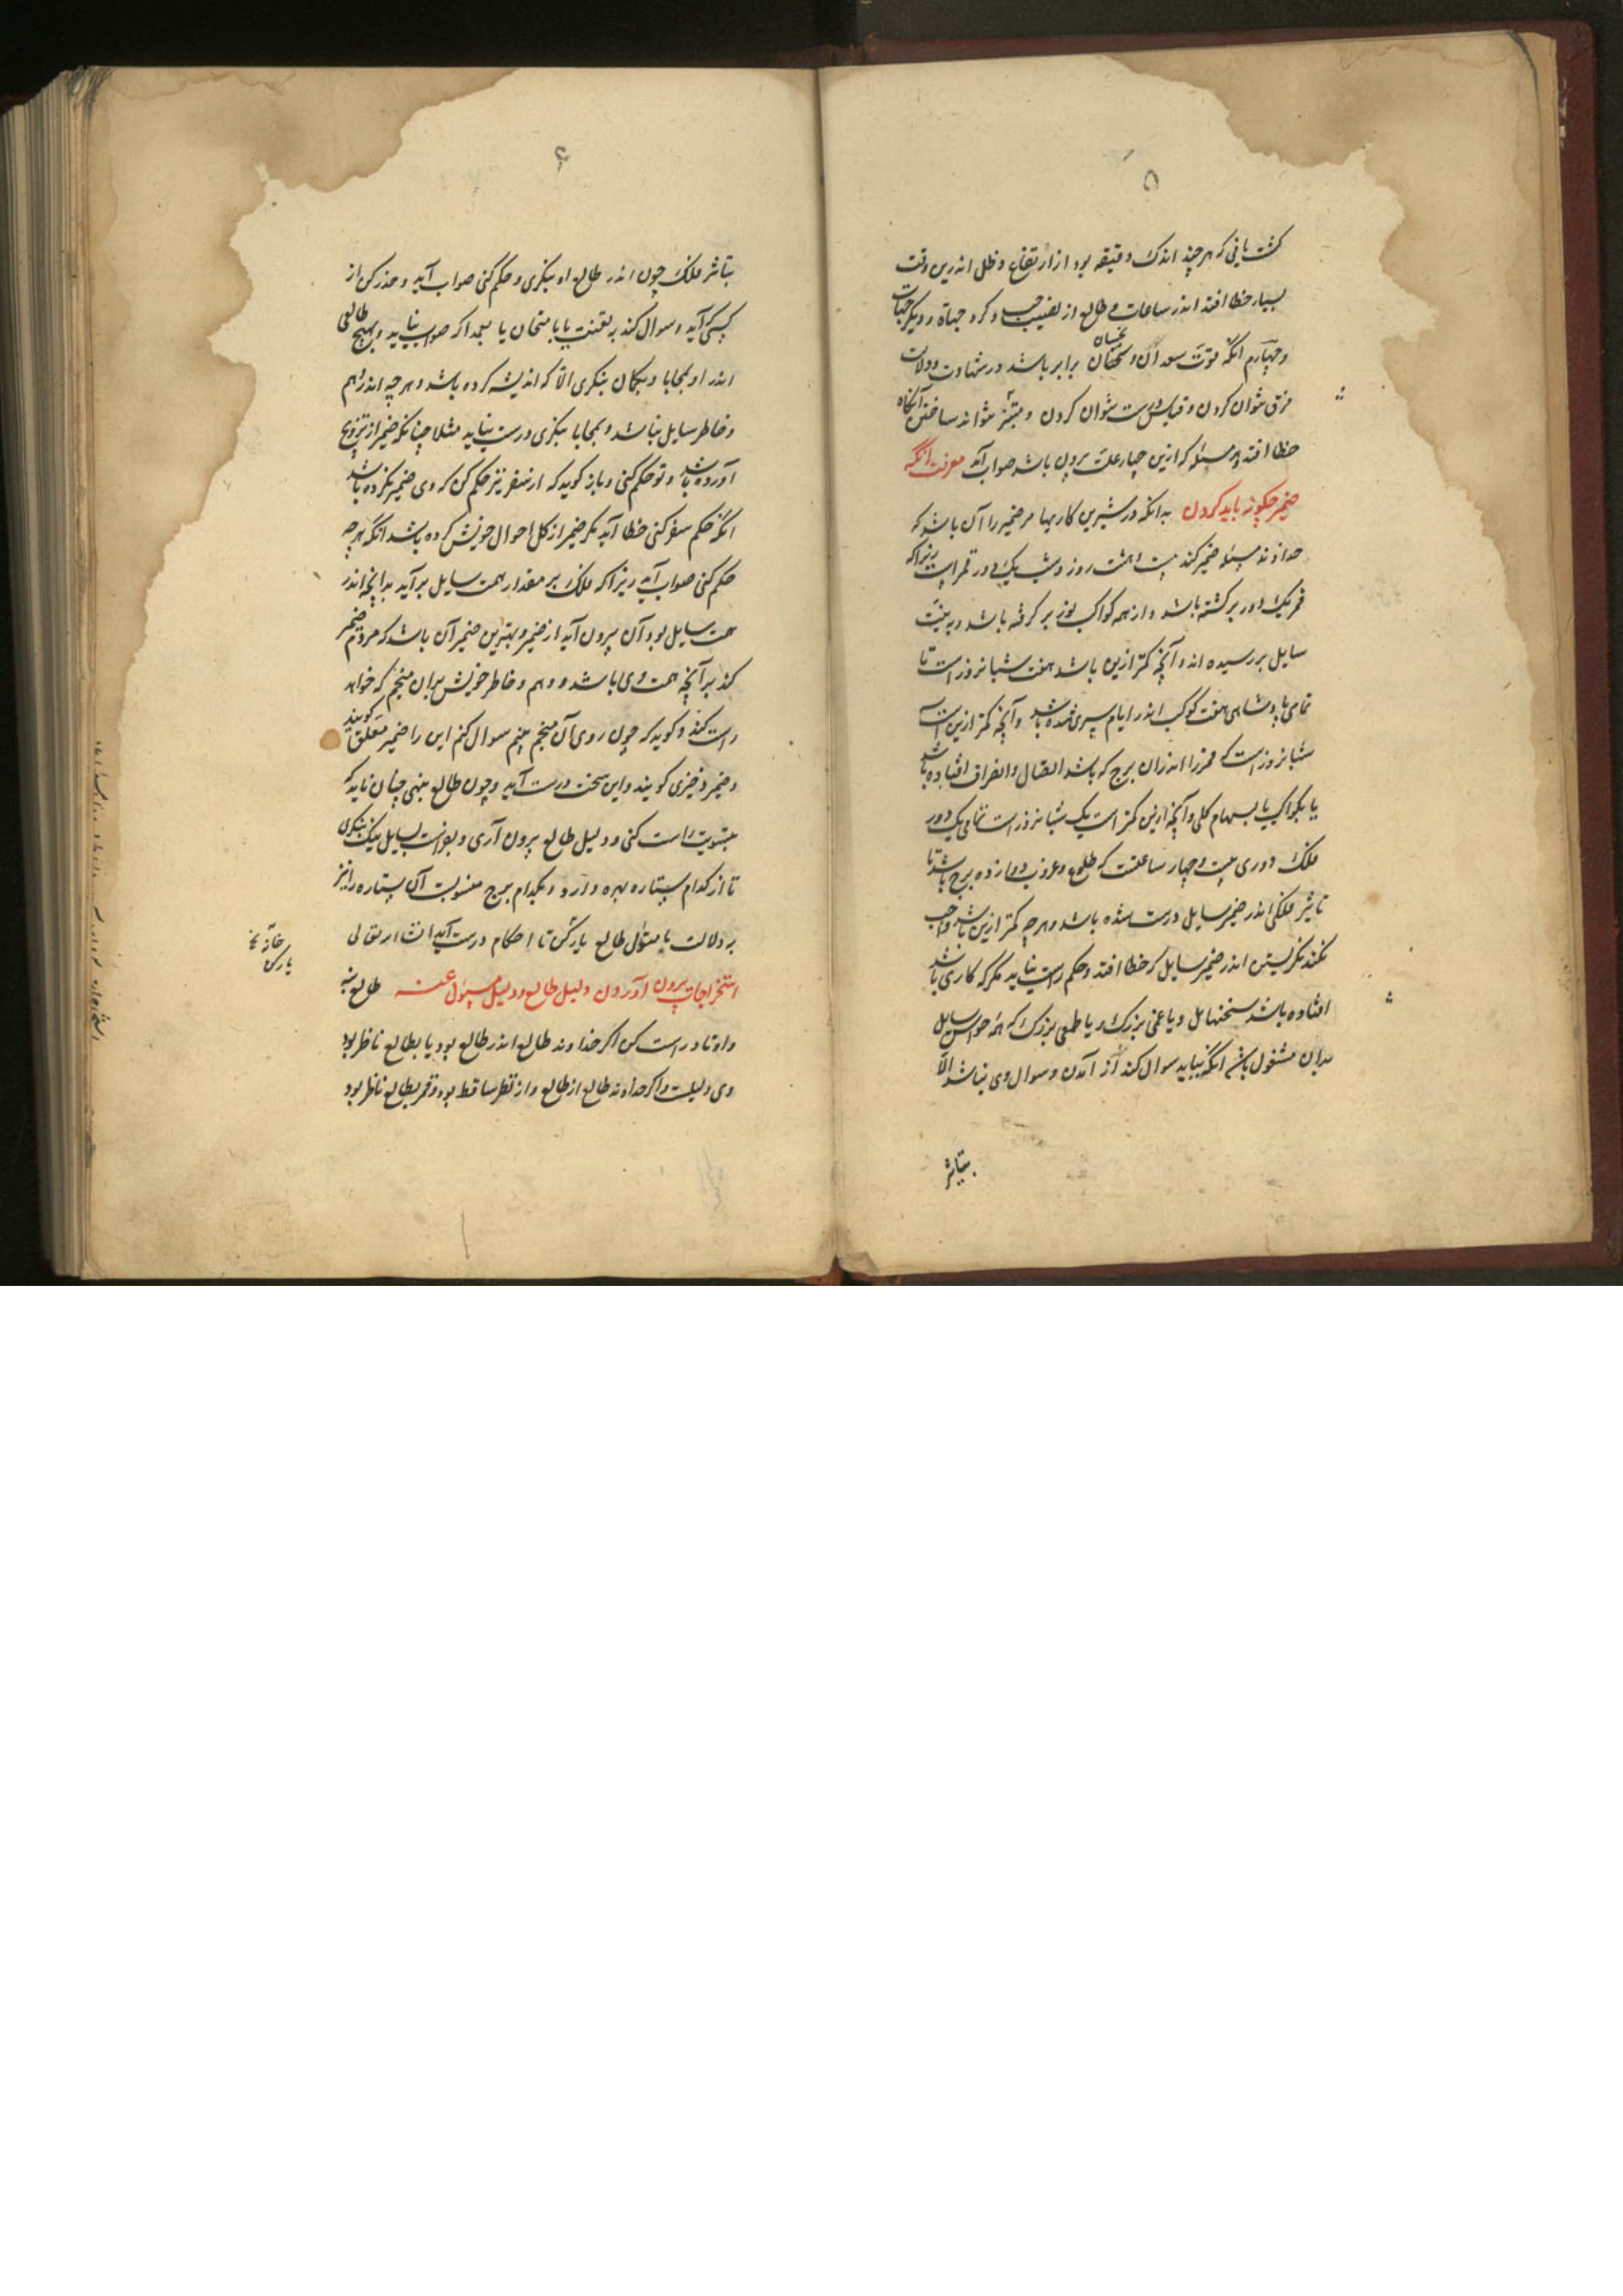 ۵
گشت یابی که هر چند اندک دقیقه بود از ارتفاع و ظل اندرین وقت
بسیار خطا افتد اندر ساعات و طالع از نصیب و کرد جهات و دیگر جهات
و چهارم آنکه قوت سعدان و نحسان برابر باشد در شهادت و دلالت
فرق نتوان کردن و قیاس درست نتوان کردن و نتواند ساختن آنگاه
خطا افتد و هر مسئله که ازین چهار علت برون باشد صواب آید معرفت آنکه
ضمیر چگونه باید کردن بدانکه درست‌ترین کاریها مر ضمیر را آن باشد که
خداوند مسئله ضمیر کند بیست و هشت روز و شب یک دور قمر است زیراکه
قمر یک دور بر گشته باشد و از همه کواکب نور بر گرفته باشد و به نیت
سایل بررسیده اند و آنچه کمتر ازین باشد هفت شبانروز است تا
تمامی پادشاهی هفت کوکب اندر ایام سپری شده باشد و آنچه کمتر ازین است سه
شبانروز است که قمر را اندران برج که باشد اتصال و انصراف افتاده باشد
یا بکواکب یا بسهام کلی و آنچه ازین کمتر است یک شبانروز است تمامی یک دور
فلک دوری بیست و چهار ساعتست که طلوع و غروب دوازده برج باشد تا
تاثیر فلکی اندر ضمیر سایل درست شده باشد و هر چه کمتر ازین باشد واجب
نکند نگریستن اندر ضمیر سایل که خطا افتد و حکم راست نیاید مگر که کاری باشد
افتاده باشد سخت هایل و یا غمی بزرگ و یا طمعی بزرگ که همه حواس سایل
بدان مشغول باشد آنکه بیاید سوال کند از آمدن و سوال وی نباشد الا
بتاثیر
۶
بتاثیر فلک چون اندر طالع او بنگری و حکم کنی صواب آید و حذر کن از
کسی که آید و سوال کند به تعنت یا بامتحان یا بعمد اگر صواب نیاید و بهیچ طالعی
اندر او بمحابا و بگمان ننگری الا که اندیشه کرده باشد و هر چه اندر وهم
و خاطر سایل نباشد و بمحابا بنگری درست نیاید مثلا چنانکه ضمیر از تزویج
آورده باشد و تو حکم کنی و باز گوید که از سفر نیز حکم کن که وی ضمیر نکرده باشد
آنکه حکم سفر کنی خطا آید مگر ضمیر از کل احوال خویش کرده باشد آنگه هر چه
حکم کنی صواب آید زیراکه فلک بر مقدار همت سایل بر آید بدانچه اندر
همت سایل بود آن بیرون آید از ضمیر و بهترین ضمیر آن باشد که مردم ضمیر
کند بر آنچه همت وی باشد و وهم و خاطر خویش بران منجم که خواهد
راست کند و گوید که چون روی آن منجم بینم سوال کنم این را ضمیر معلق گویند
و ضمیر ذخیری گویند و این سخت درست آید و چون طالع بنهی چنان باید که
بتسویت راست کنی و دلیل طالع برون آری و بفراست بسایل نیک بنگری
تا از کدام ستاره بهره دارد و بکدام برج منسوبست آن ستاره را نیز
به دلالت با مسئول طالع یار کن تا احکام درست آید انشاء الله تعالی
استخراجات برون آوردن دلیل طالع و دلیل مسئول عنه طالع بنه
و اوتاد راست کن اگر خداوند طالع اندر طالع بود یا بطالع ناظر بود
وی دلیلست و اگر خداوند طالع از طالع و از نظر ساقط بود و قمر بطالع ناظر بود